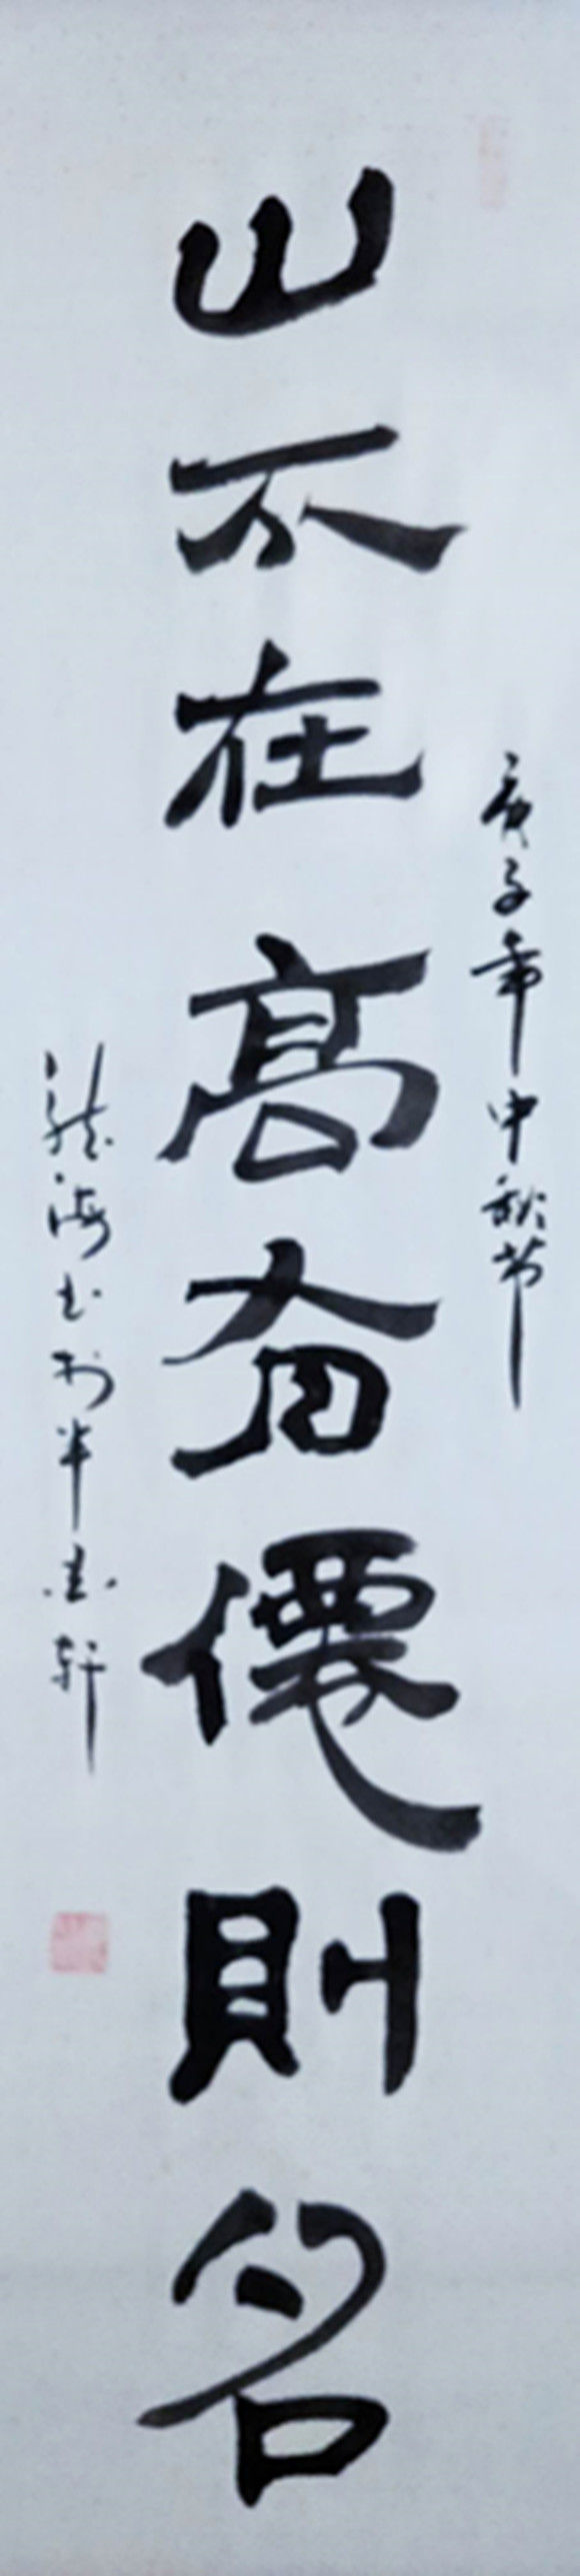 庚子年中秋节
山不在高有僊則名
龍海书於半息轩